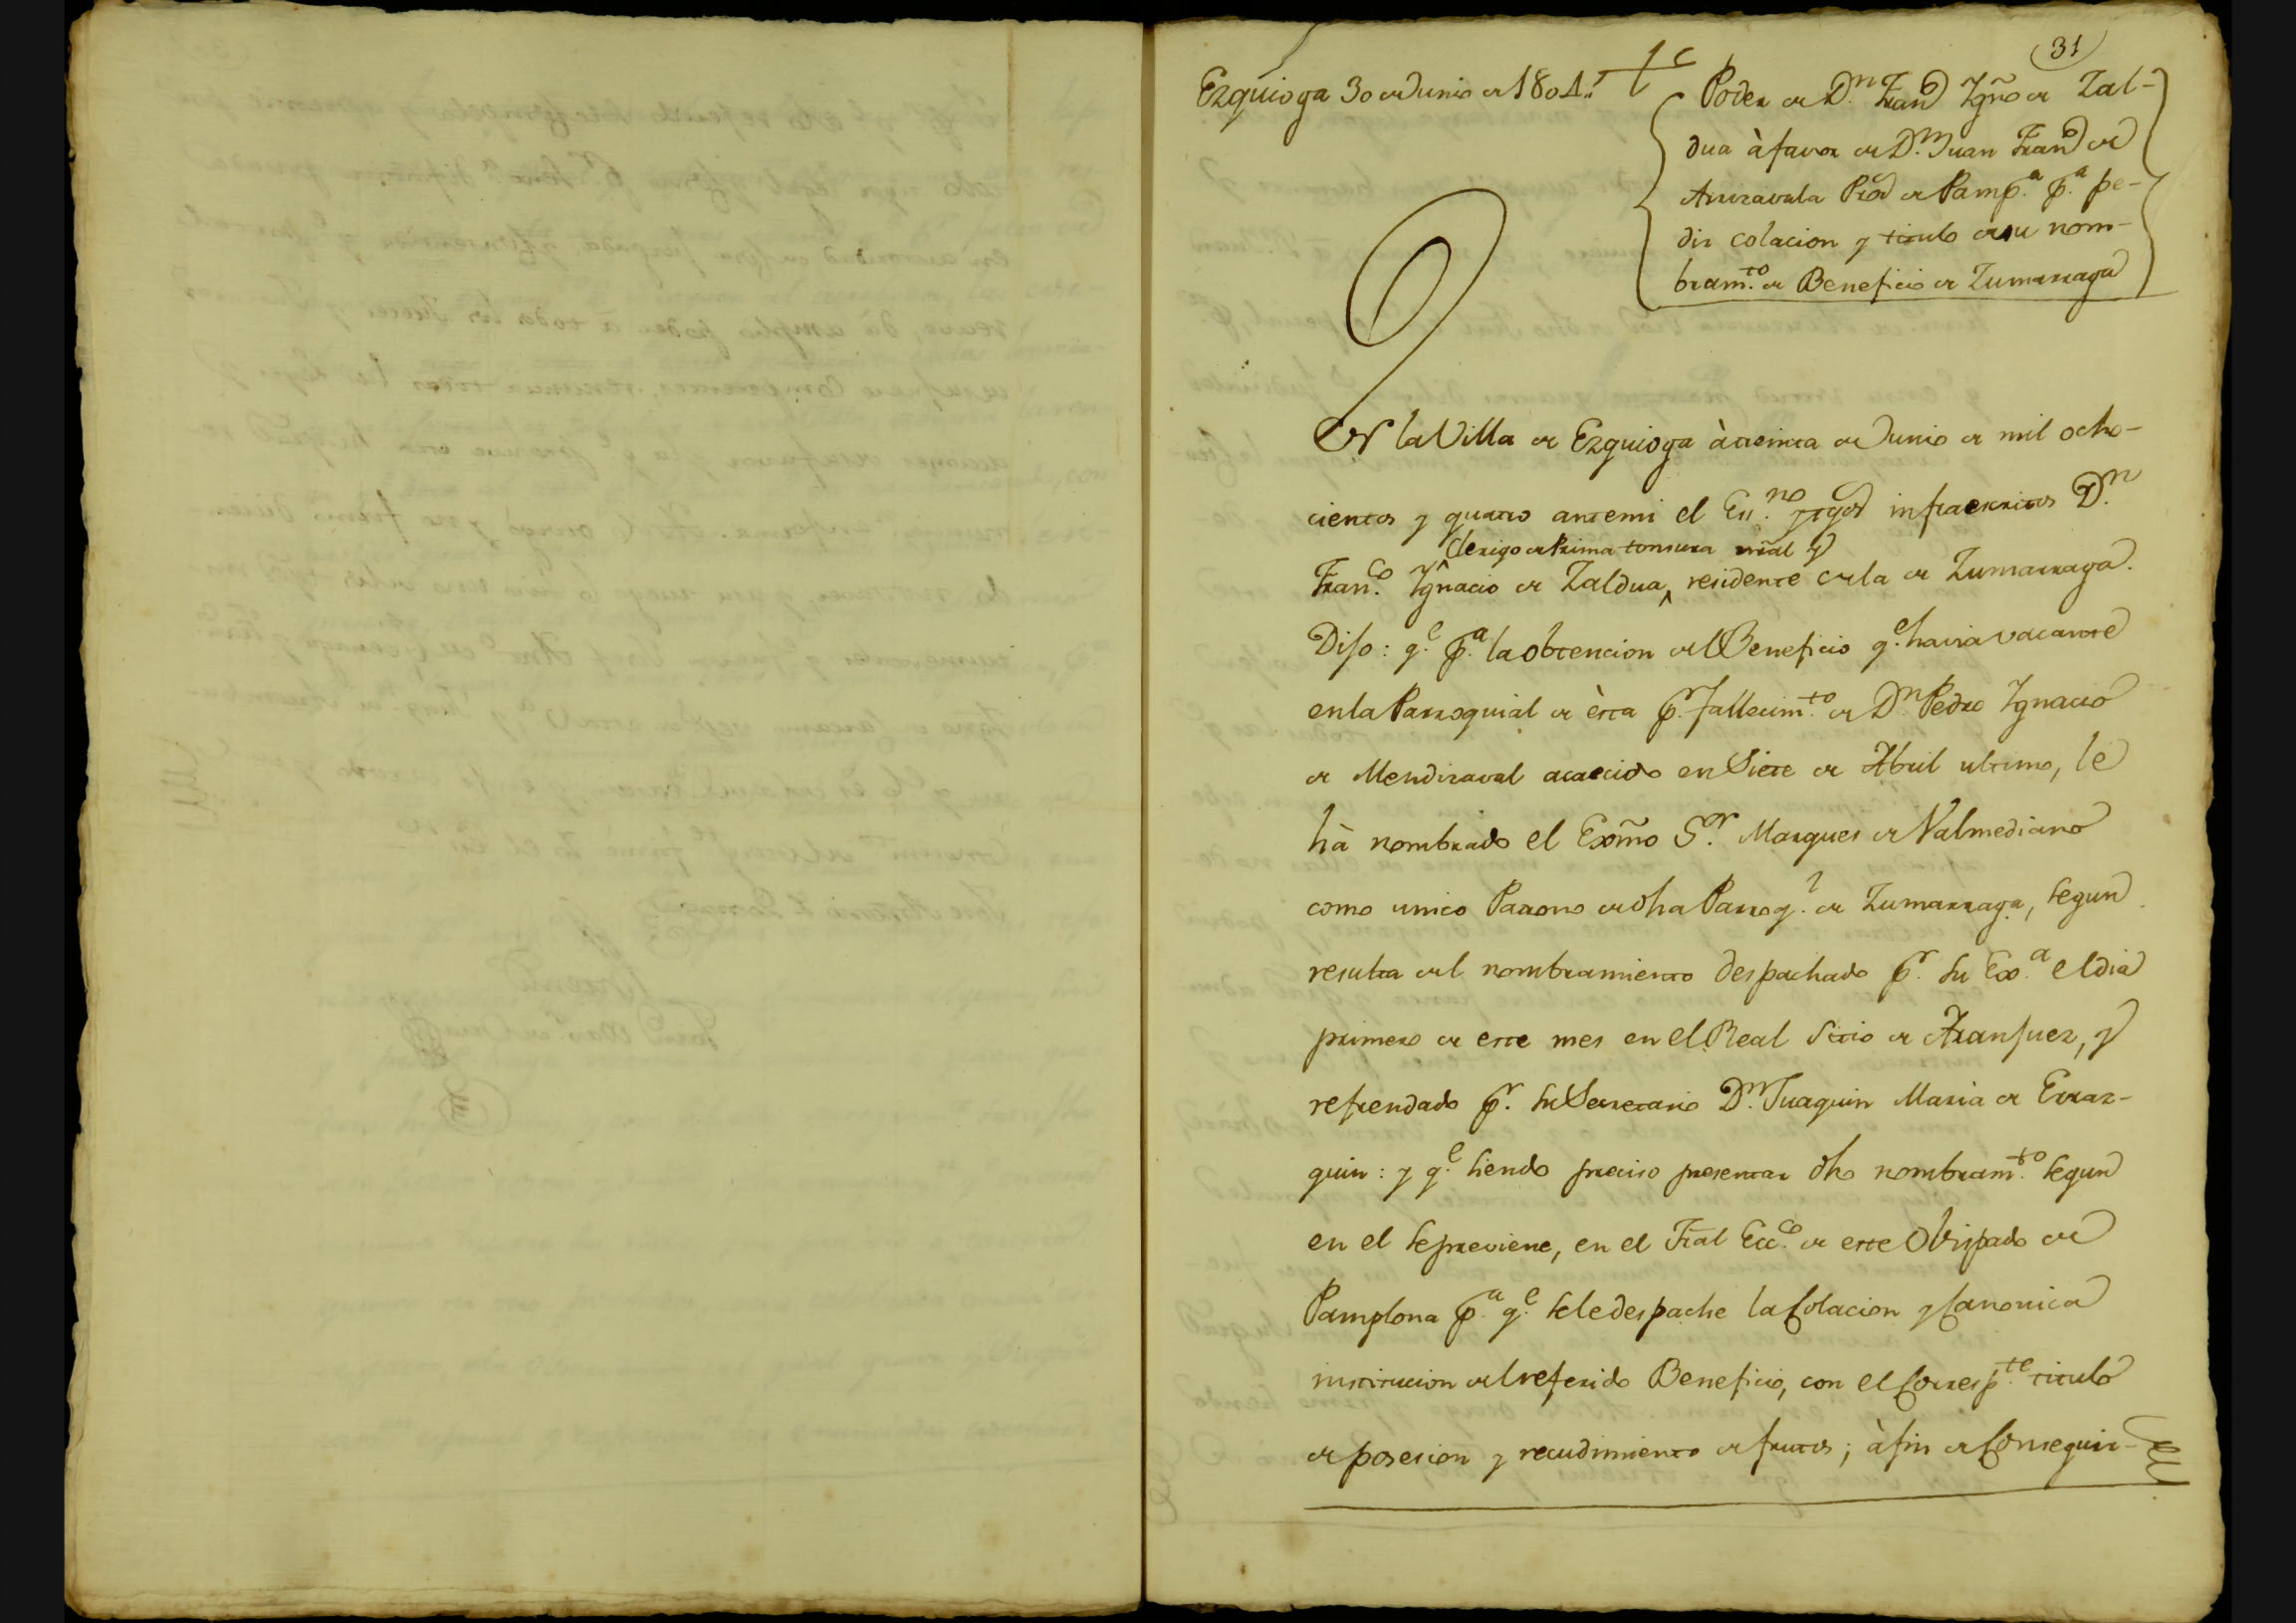 31
Ezquioga 30 de Junio de 1804.
Poder de D.n Fran.co Ygño de Zal-
dua à favor de D.n Juan Fran.co de
Arrizavala Pro.r de Pamp.a p.a pe-
dir colacion y titulo de su nom-
bram.to de Beneficio de Zumarraga
En la Villa de Ezquioga à treinta de Junio de mil ocho-
cientos y quatro ante mi el Ess.no y tgos infraescritos D.n
Clerigo de Prima tonsura nral y
Fran.co Ygnacio de Zaldua, residente en la de Zumarraga.
Dijo: q.e p.a la obtencion del Beneficio q.e havia vacante
en la Parroquial de èsta p.r fallecim.to de D.n Pedro Ygnacio
de Mendizaval acaecido en Siete de Abril ultimo, le
hà nombrado el Exmõ S.or Marques de Valmediano
como unico Patrono de dha Parroq.l de Zumarraga, segun
resulta del nombramiento despachado p.r su Ex.a el dia
primero de este mes en el Real Sitio de Aranjuez, y
refrendado p.r su Secretario D.n Juaquin Maria de Erraz-
quin: y q.e siendo preciso presentar dho nombram.to segun
en el se previene, en el Tral Ecc.co de este Obispado de
Pamplona p.a q.e se le despache la Colacion y Canonica
institucion del referido Beneficio, con el Corresp.te titulo
de posesion y recudimiento de frutos; à fin de Conseguir-